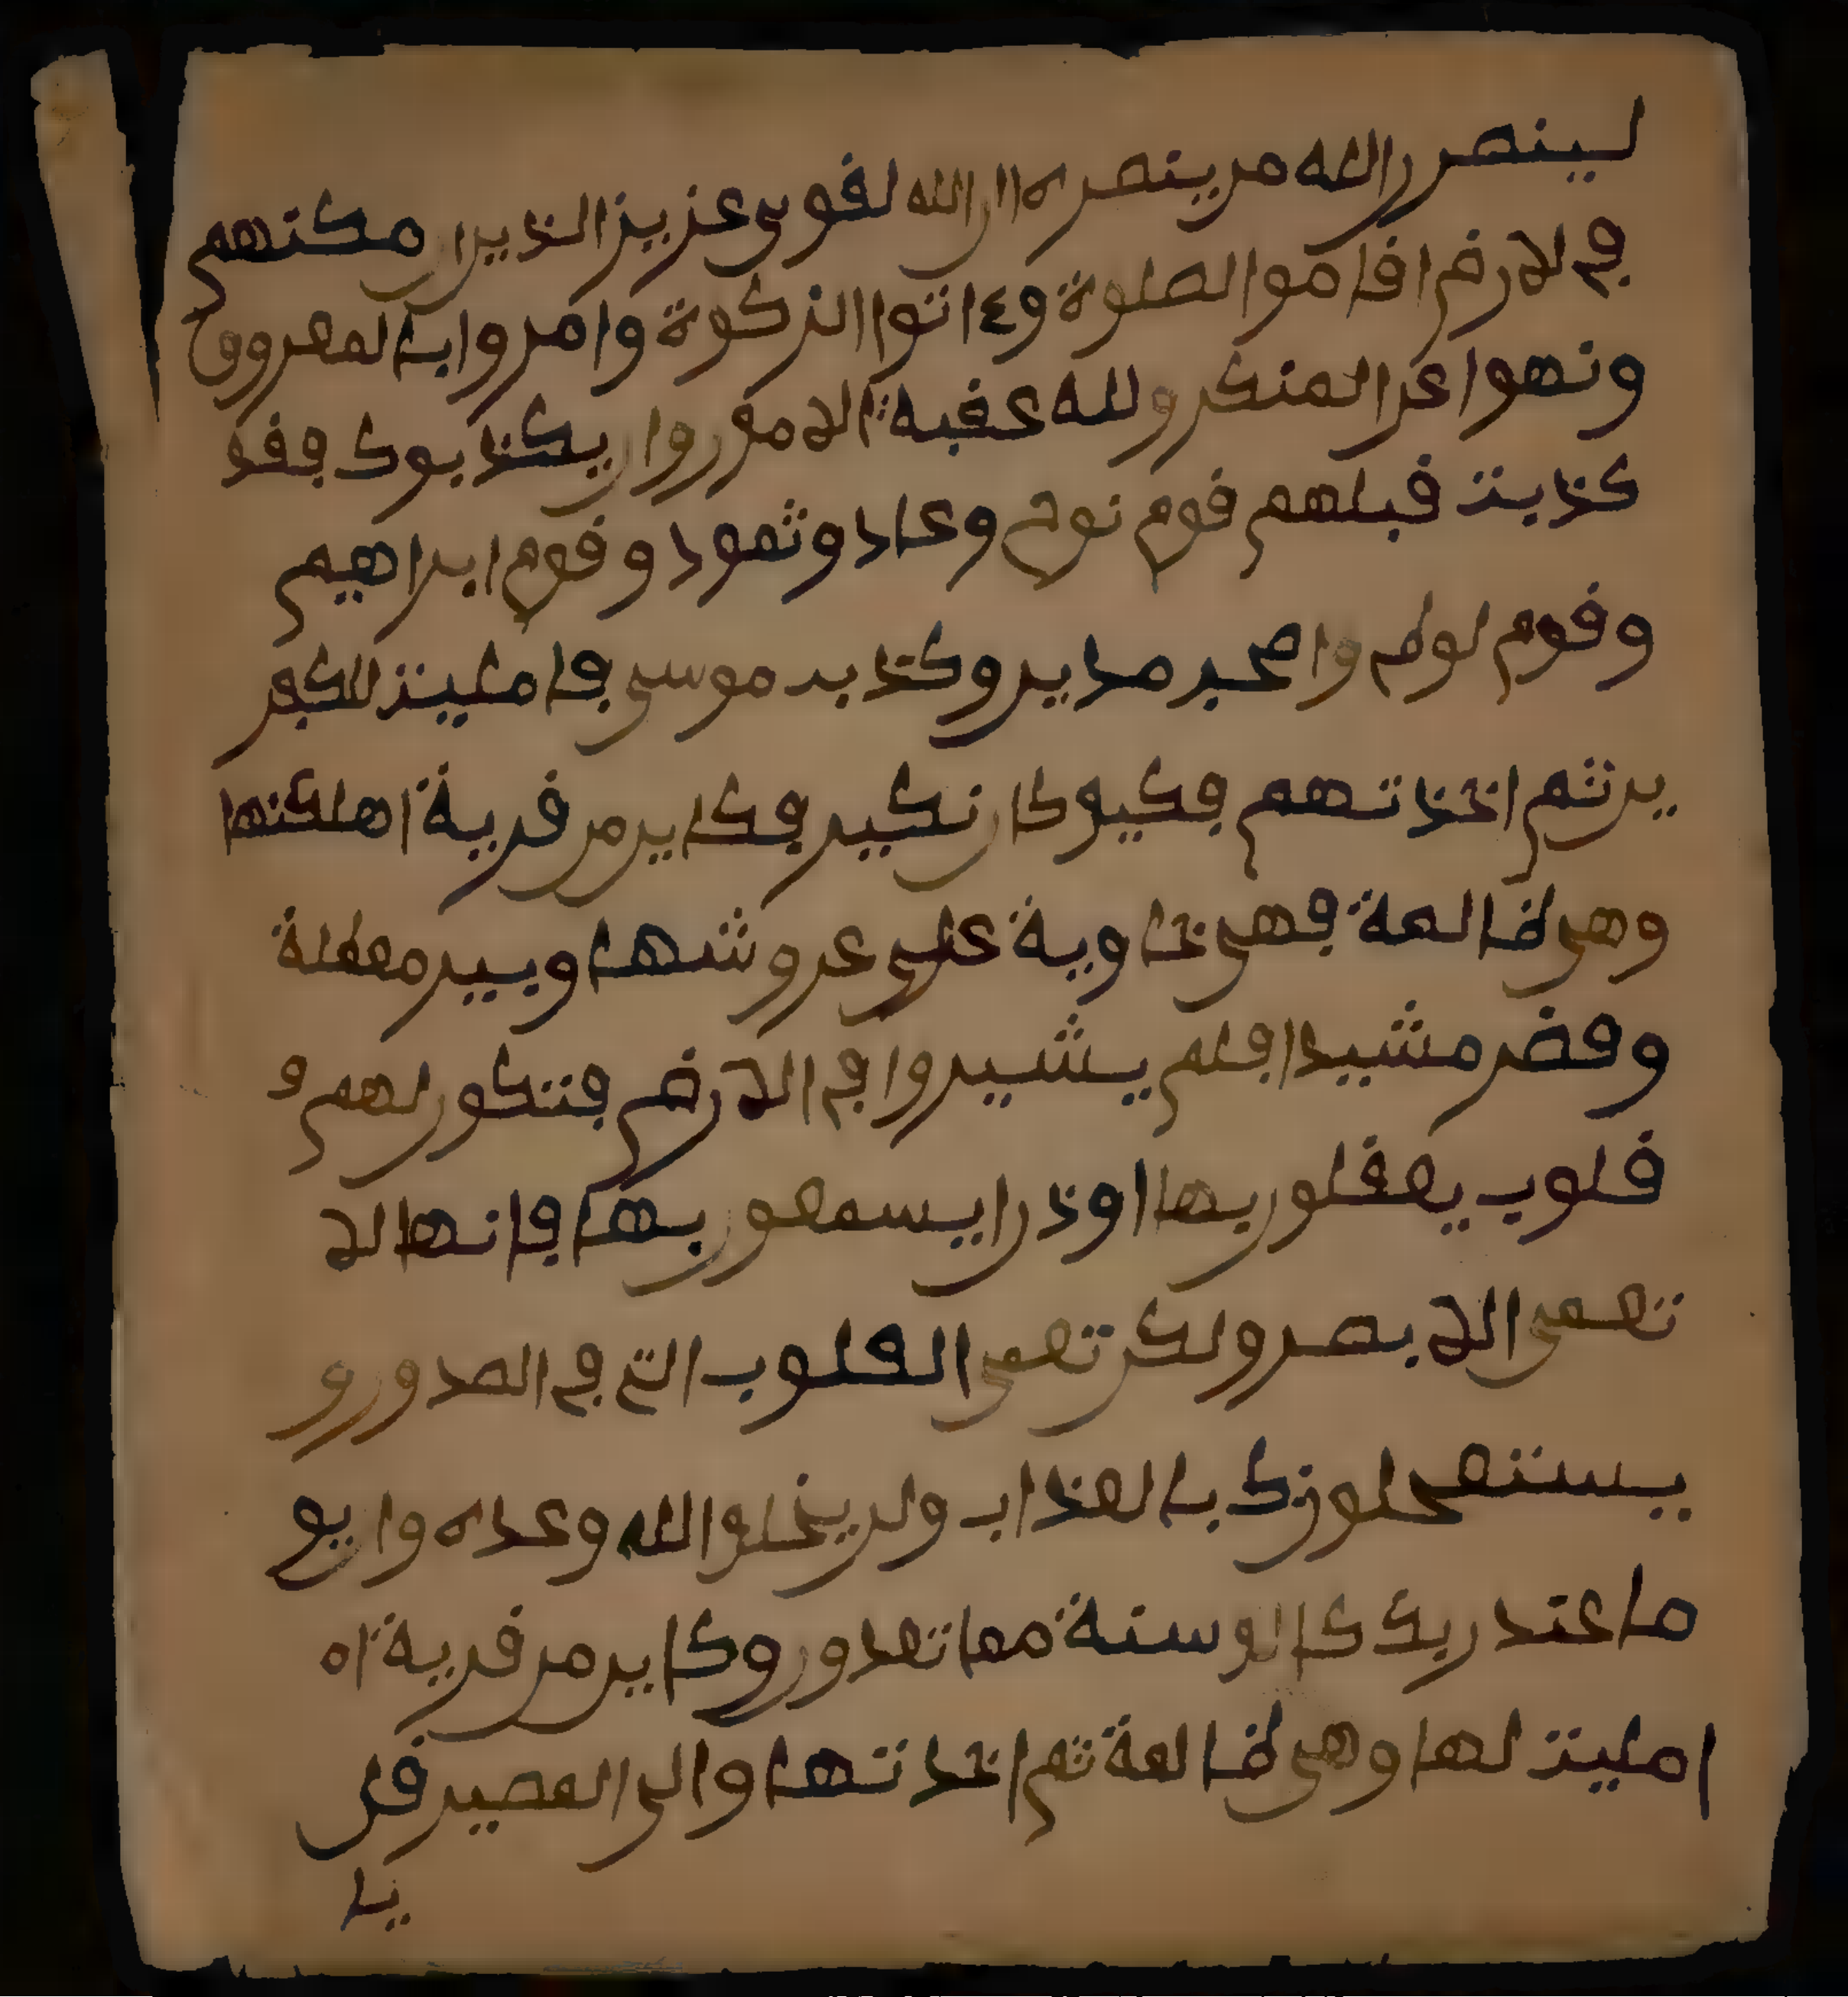 لينصرن الله من ينصره ان الله لقوى عزيز الذين ان مكنهم
في الارض اقاموا الصلوة وءاتوا الزكوة وامروا بالمعروف
ونهوا عن المنكر ولله عقبة الامور وان يكذبوك فقد
كذبت قبلهم قوم نوح وعاد وثمود وقوم ابراهيم
وقوم لوط واصحب مدين وكذب موسى فامليت للكفر
ين ثم اخذتهم فكيف كان نكير فكاين من قرية اهلكنها
وهى ظالمة فهى خاوية على عروشها وبير معطلة
وقصر مشيد افلم يشيروا في الارض فتكون لهم و
قلوب يعقلون بها او ذان يسمعون بها فانها لا
تعمى الابصر ولكن تعمى القلوب التي في الصدور و
يستعجلونك بالعذاب ولن يخلف الله وعده وان يو
ما عند ربك كالف سنة مما تعدون وكاين من قرية اه
امليت لها وهى ظالمة ثم اخذتها والى المصير قل
يا